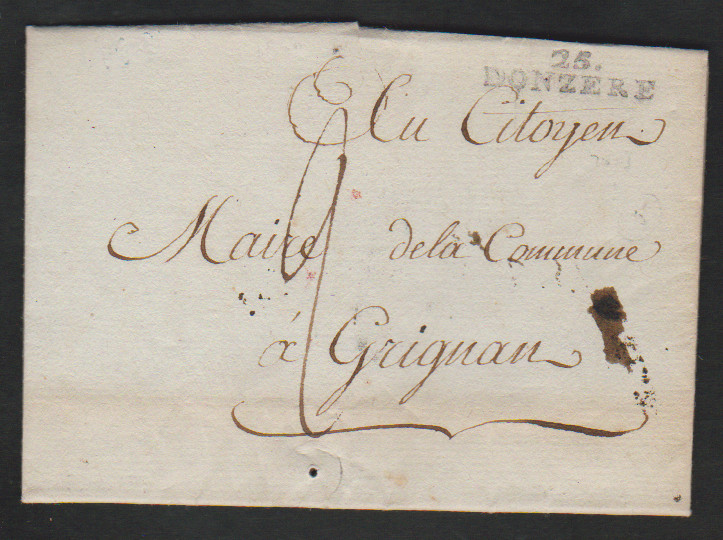 25.
DONZERE
Au Citoyen
Maire dela Commune
à Grignan